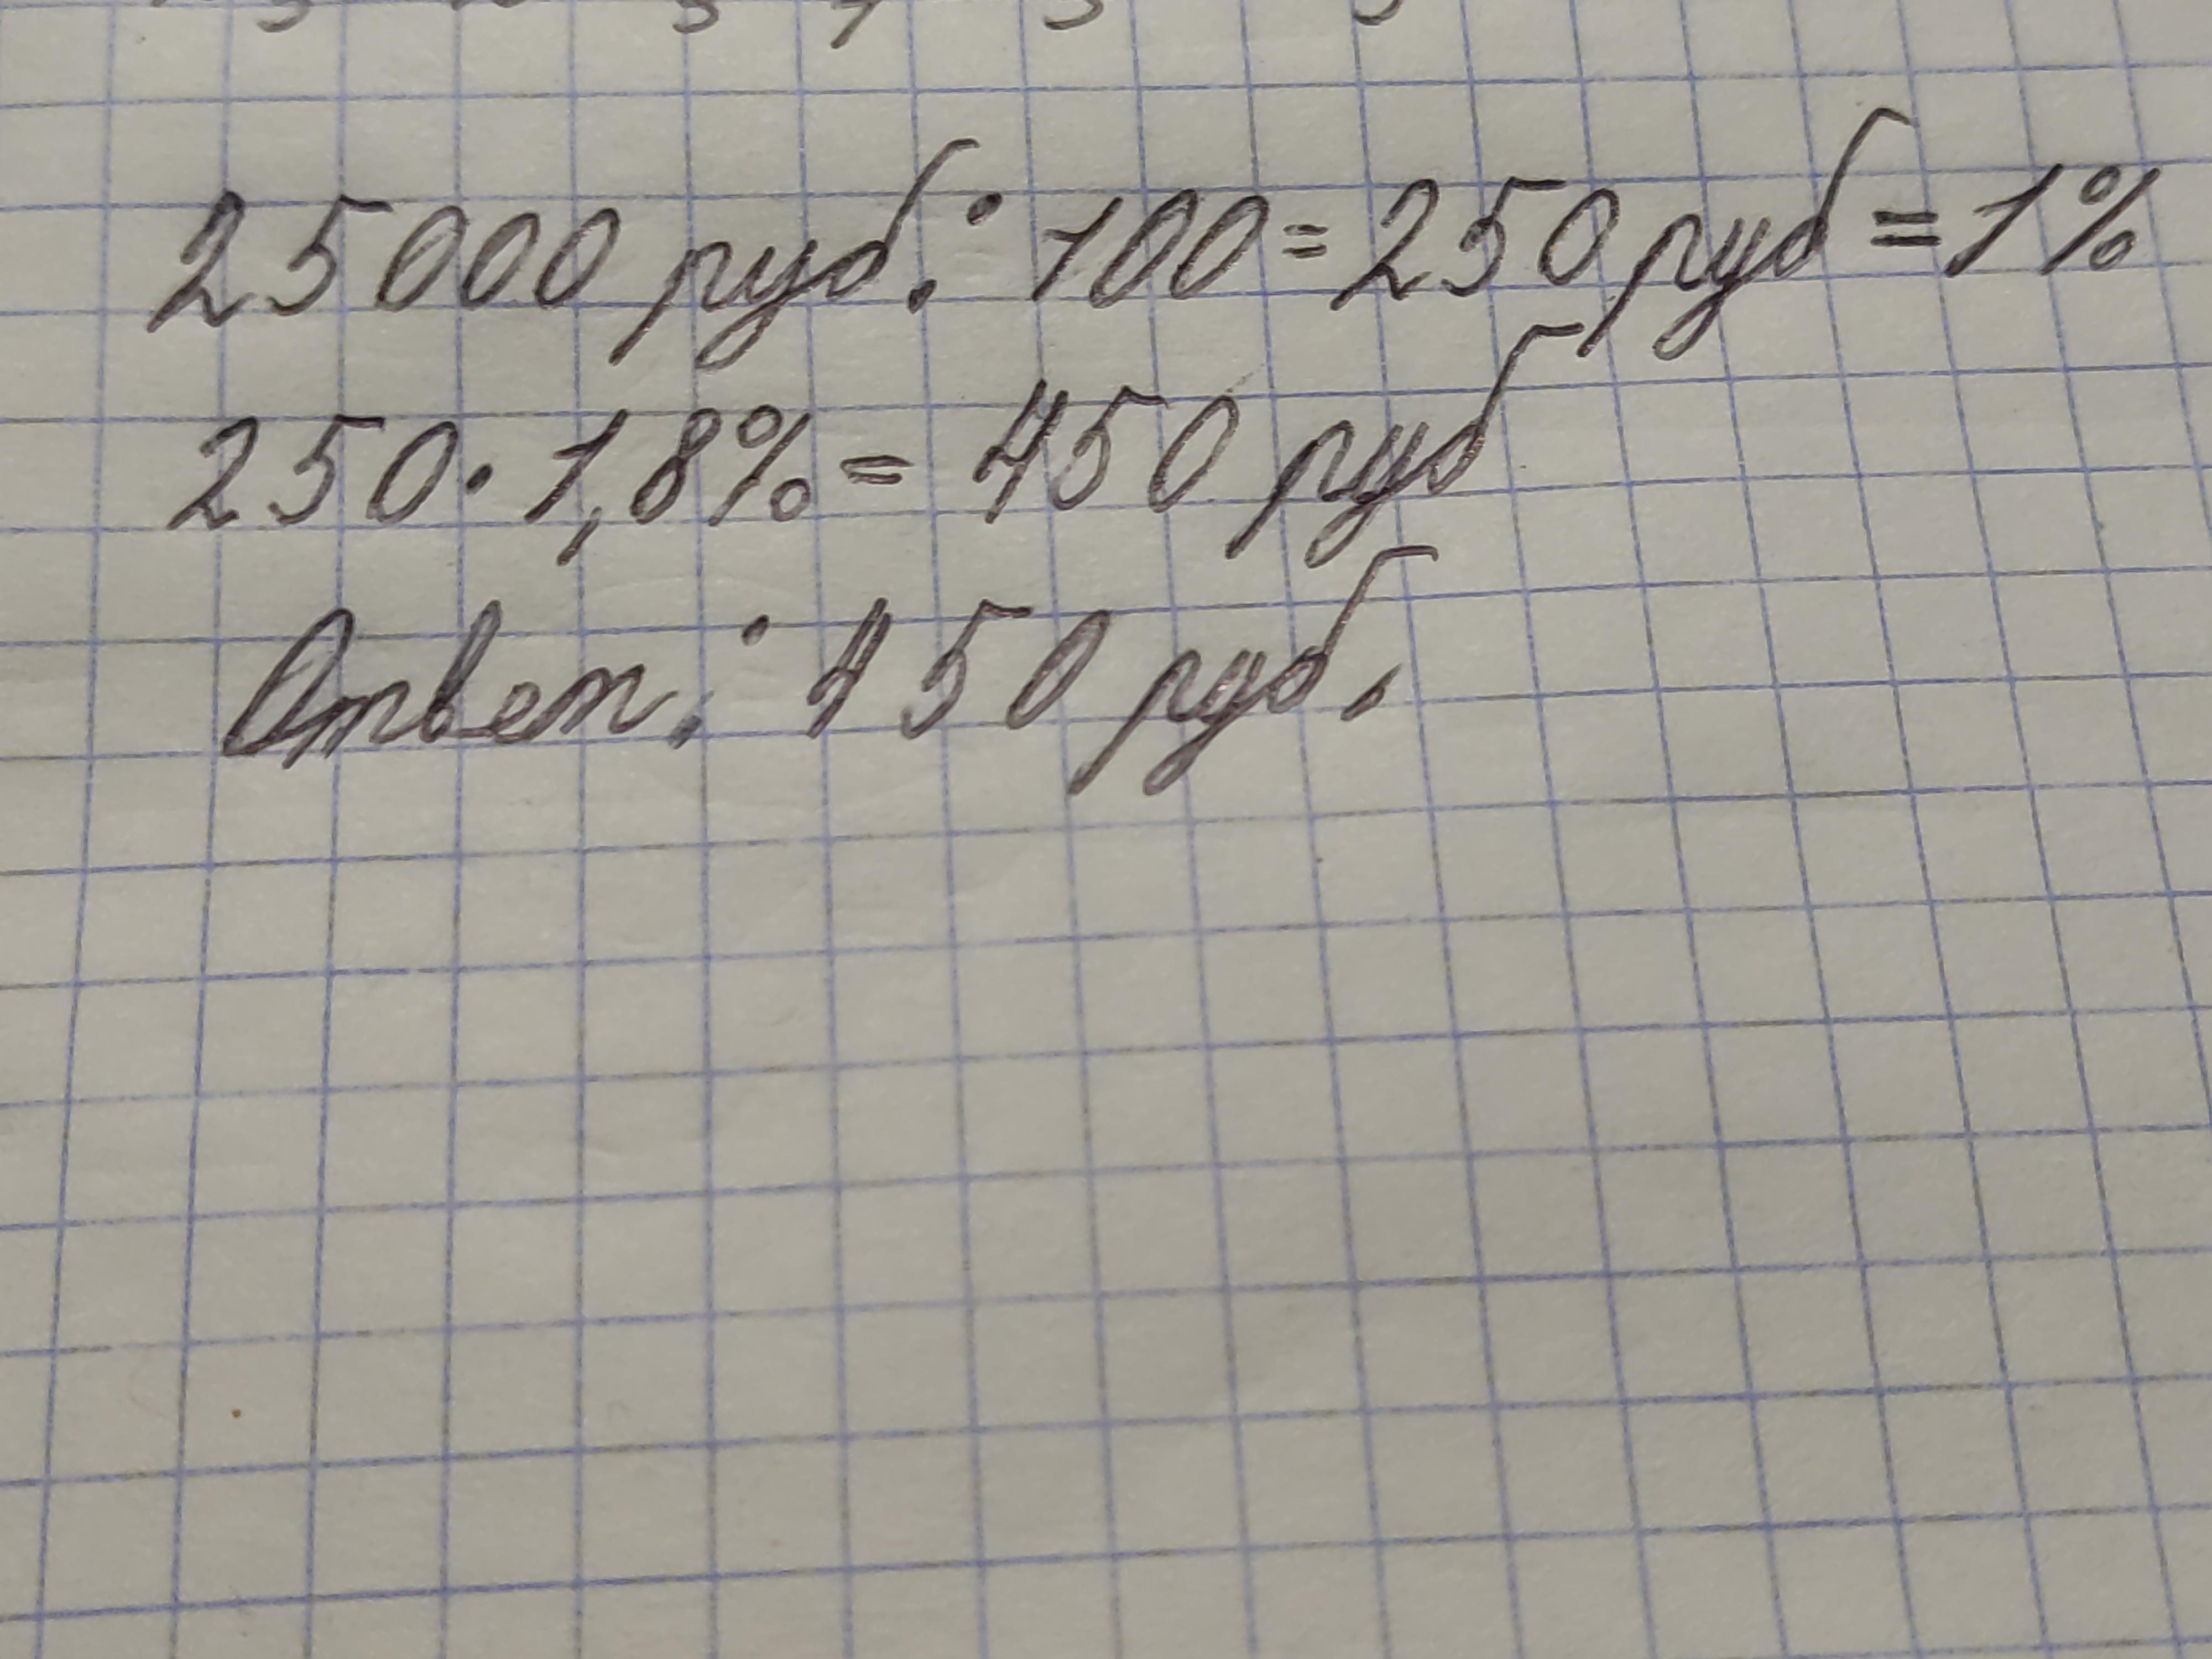 25000 руб. : 100 = 250 руб = 1%
250 · 1,8% = 450 руб
Ответ: 450 руб.